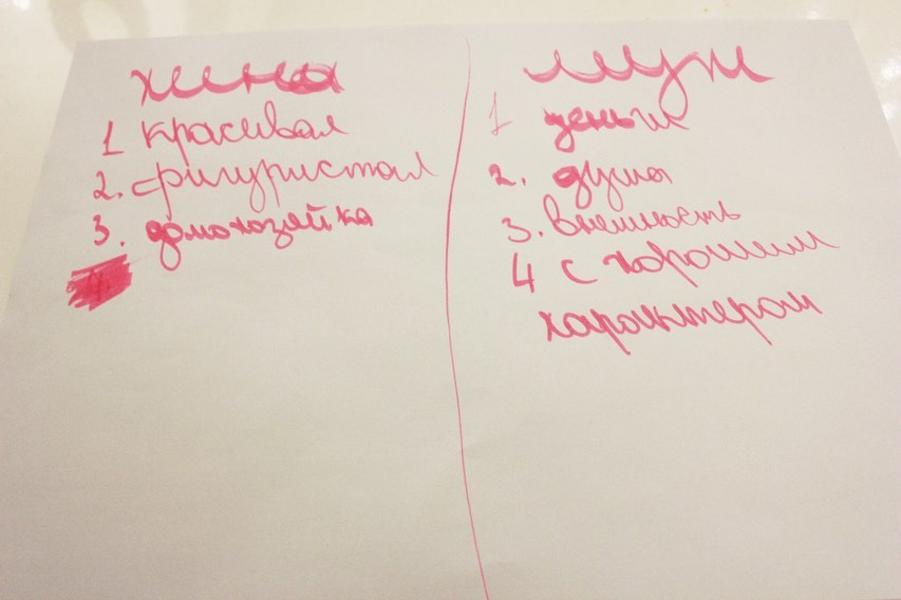 жена
1 красивая
2. фигуристая
3. домохозяйка
муж
1 деньги
2. душа
3. внешность
4 с хорошим
характером